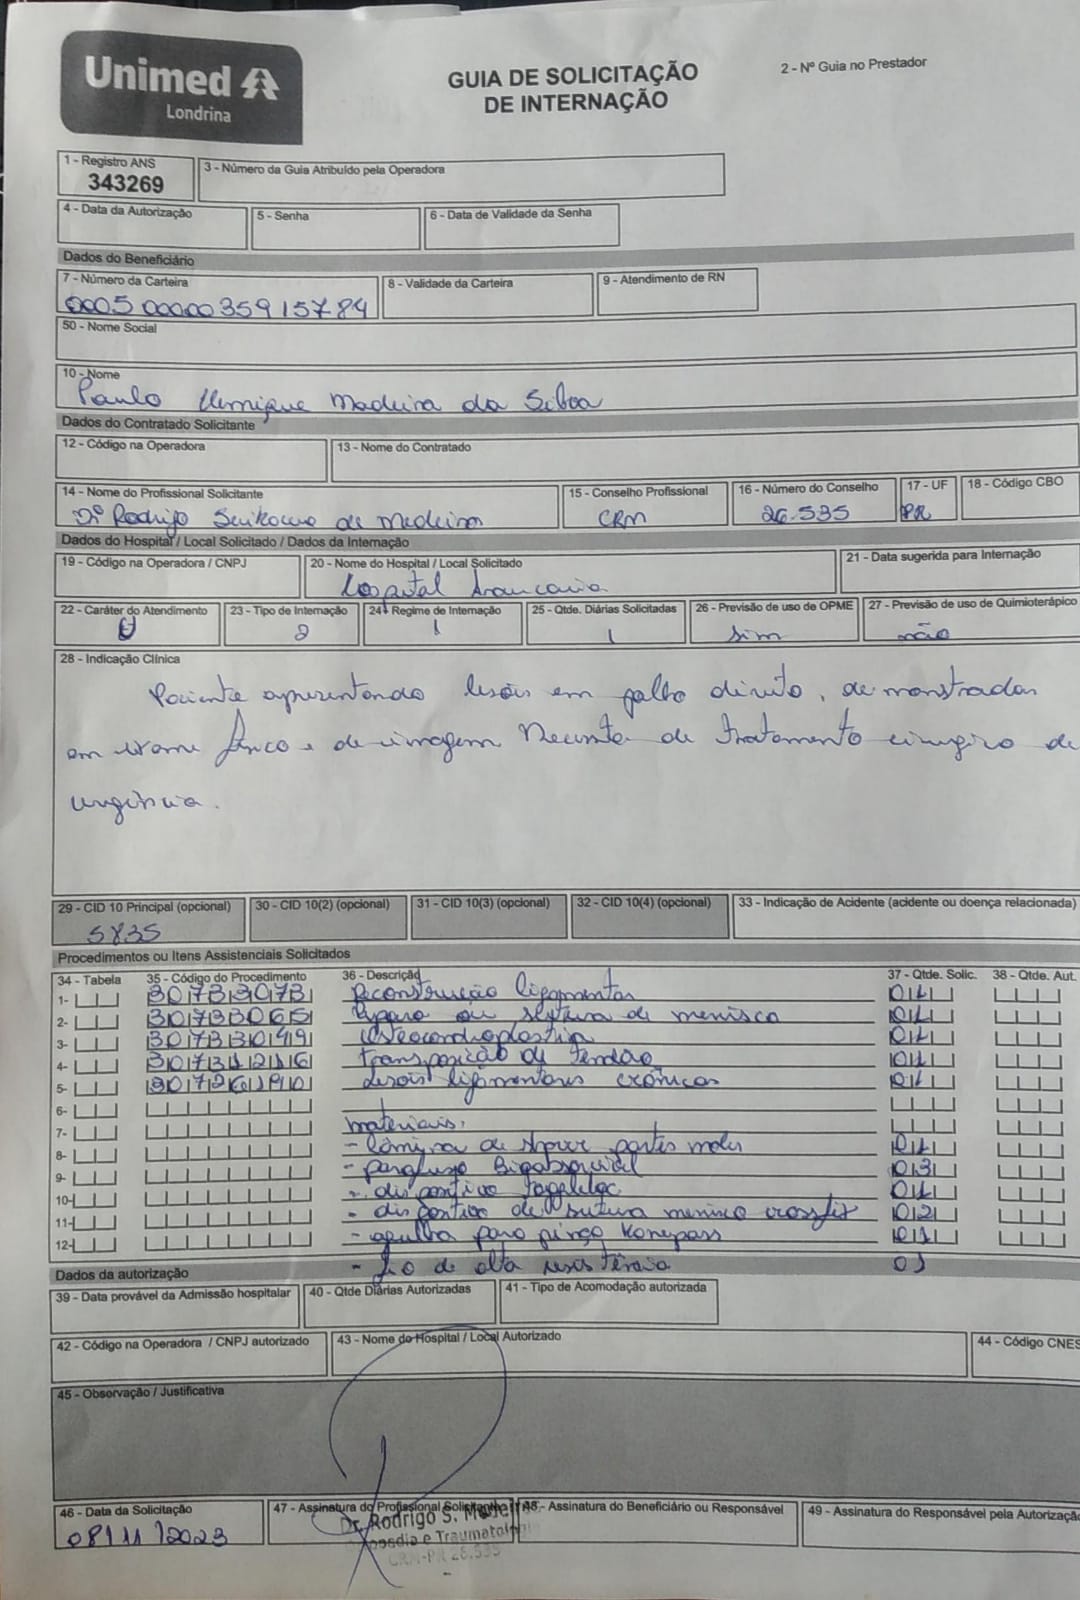 Unimed
Londrina
GUIA DE SOLICITAÇÃO
DE INTERNAÇÃO
2 - Nº Guia no Prestador
1 - Registro ANS
343269
3 - Número da Guia Atribuído pela Operadora
4 - Data da Autorização
5 - Senha
6 - Data de Validade da Senha
Dados do Beneficiário
7 - Número da Carteira
0005 00000 359 15784
8 - Validade da Carteira
9 - Atendimento de RN
50 - Nome Social
10 - Nome
Paulo Henrique Madeira da Silva
Dados do Contratado Solicitante
12 - Código na Operadora
13 - Nome do Contratado
14 - Nome do Profissional Solicitante
Dr Rodrigo de Medeiros
15 - Conselho Profissional
CRM
16 - Número do Conselho
26.535
17 - UF
PR
18 - Código CBO
Dados do Hospital / Local Solicitado / Dados da Internação
19 - Código na Operadora / CNPJ
20 - Nome do Hospital / Local Solicitado
Hospital Araucaria
21 - Data sugerida para Internação
22 - Caráter do Atendimento
U
23 - Tipo de Internação
2
24 - Regime de Internação
1
25 - Qtde. Diárias Solicitadas
1
26 - Previsão de uso de OPME
sim
27 - Previsão de uso de Quimioterápico
não
28 - Indicação Clínica
Paciente apresentando lesões em joelho direito, demonstradas
em exame físico e de imagem Necessita de tratamento cirúrgico de
urgência.
29 - CID 10 Principal (opcional)
S835
30 - CID 10(2) (opcional)
31 - CID 10(3) (opcional)
32 - CID 10(4) (opcional)
33 - Indicação de Acidente (acidente ou doença relacionada)
Procedimentos ou Itens Assistenciais Solicitados
34 - Tabela
35 - Código do Procedimento
36 - Descrição
37 - Qtde. Solic.
38 - Qtde. Aut.
1- 30733073 Reconstrução ligamentar 01
2- 30733065 Reparo ou sutura de menisco 01
3- 30733049 Osteocondroplastia 01
4- 30731216 transposição de tendão 01
5- lesões ligamentares crônicas 01
6-
7- materiais:
8- - lâmina de shaver partes moles 01
9- - parafuso Bioabsorvível 03
10- - dispositivo 01
11- - dispositivo de sutura menisco crossfix 02
12- - agulha para pinça Konepass 01
- fio de alta resistência 01
Dados da autorização
39 - Data provável da Admissão hospitalar
40 - Qtde Diárias Autorizadas
41 - Tipo de Acomodação autorizada
42 - Código na Operadora / CNPJ autorizado
43 - Nome do Hospital / Local Autorizado
44 - Código CNES
45 - Observação / Justificativa
46 - Data da Solicitação
08/11/2023
47 - Assinatura do Profissional Solicitante
Dr. Rodrigo S.
Ortopedia e Traumatologia
CRM-PR 26.535
48 - Assinatura do Beneficiário ou Responsável
49 - Assinatura do Responsável pela Autorização